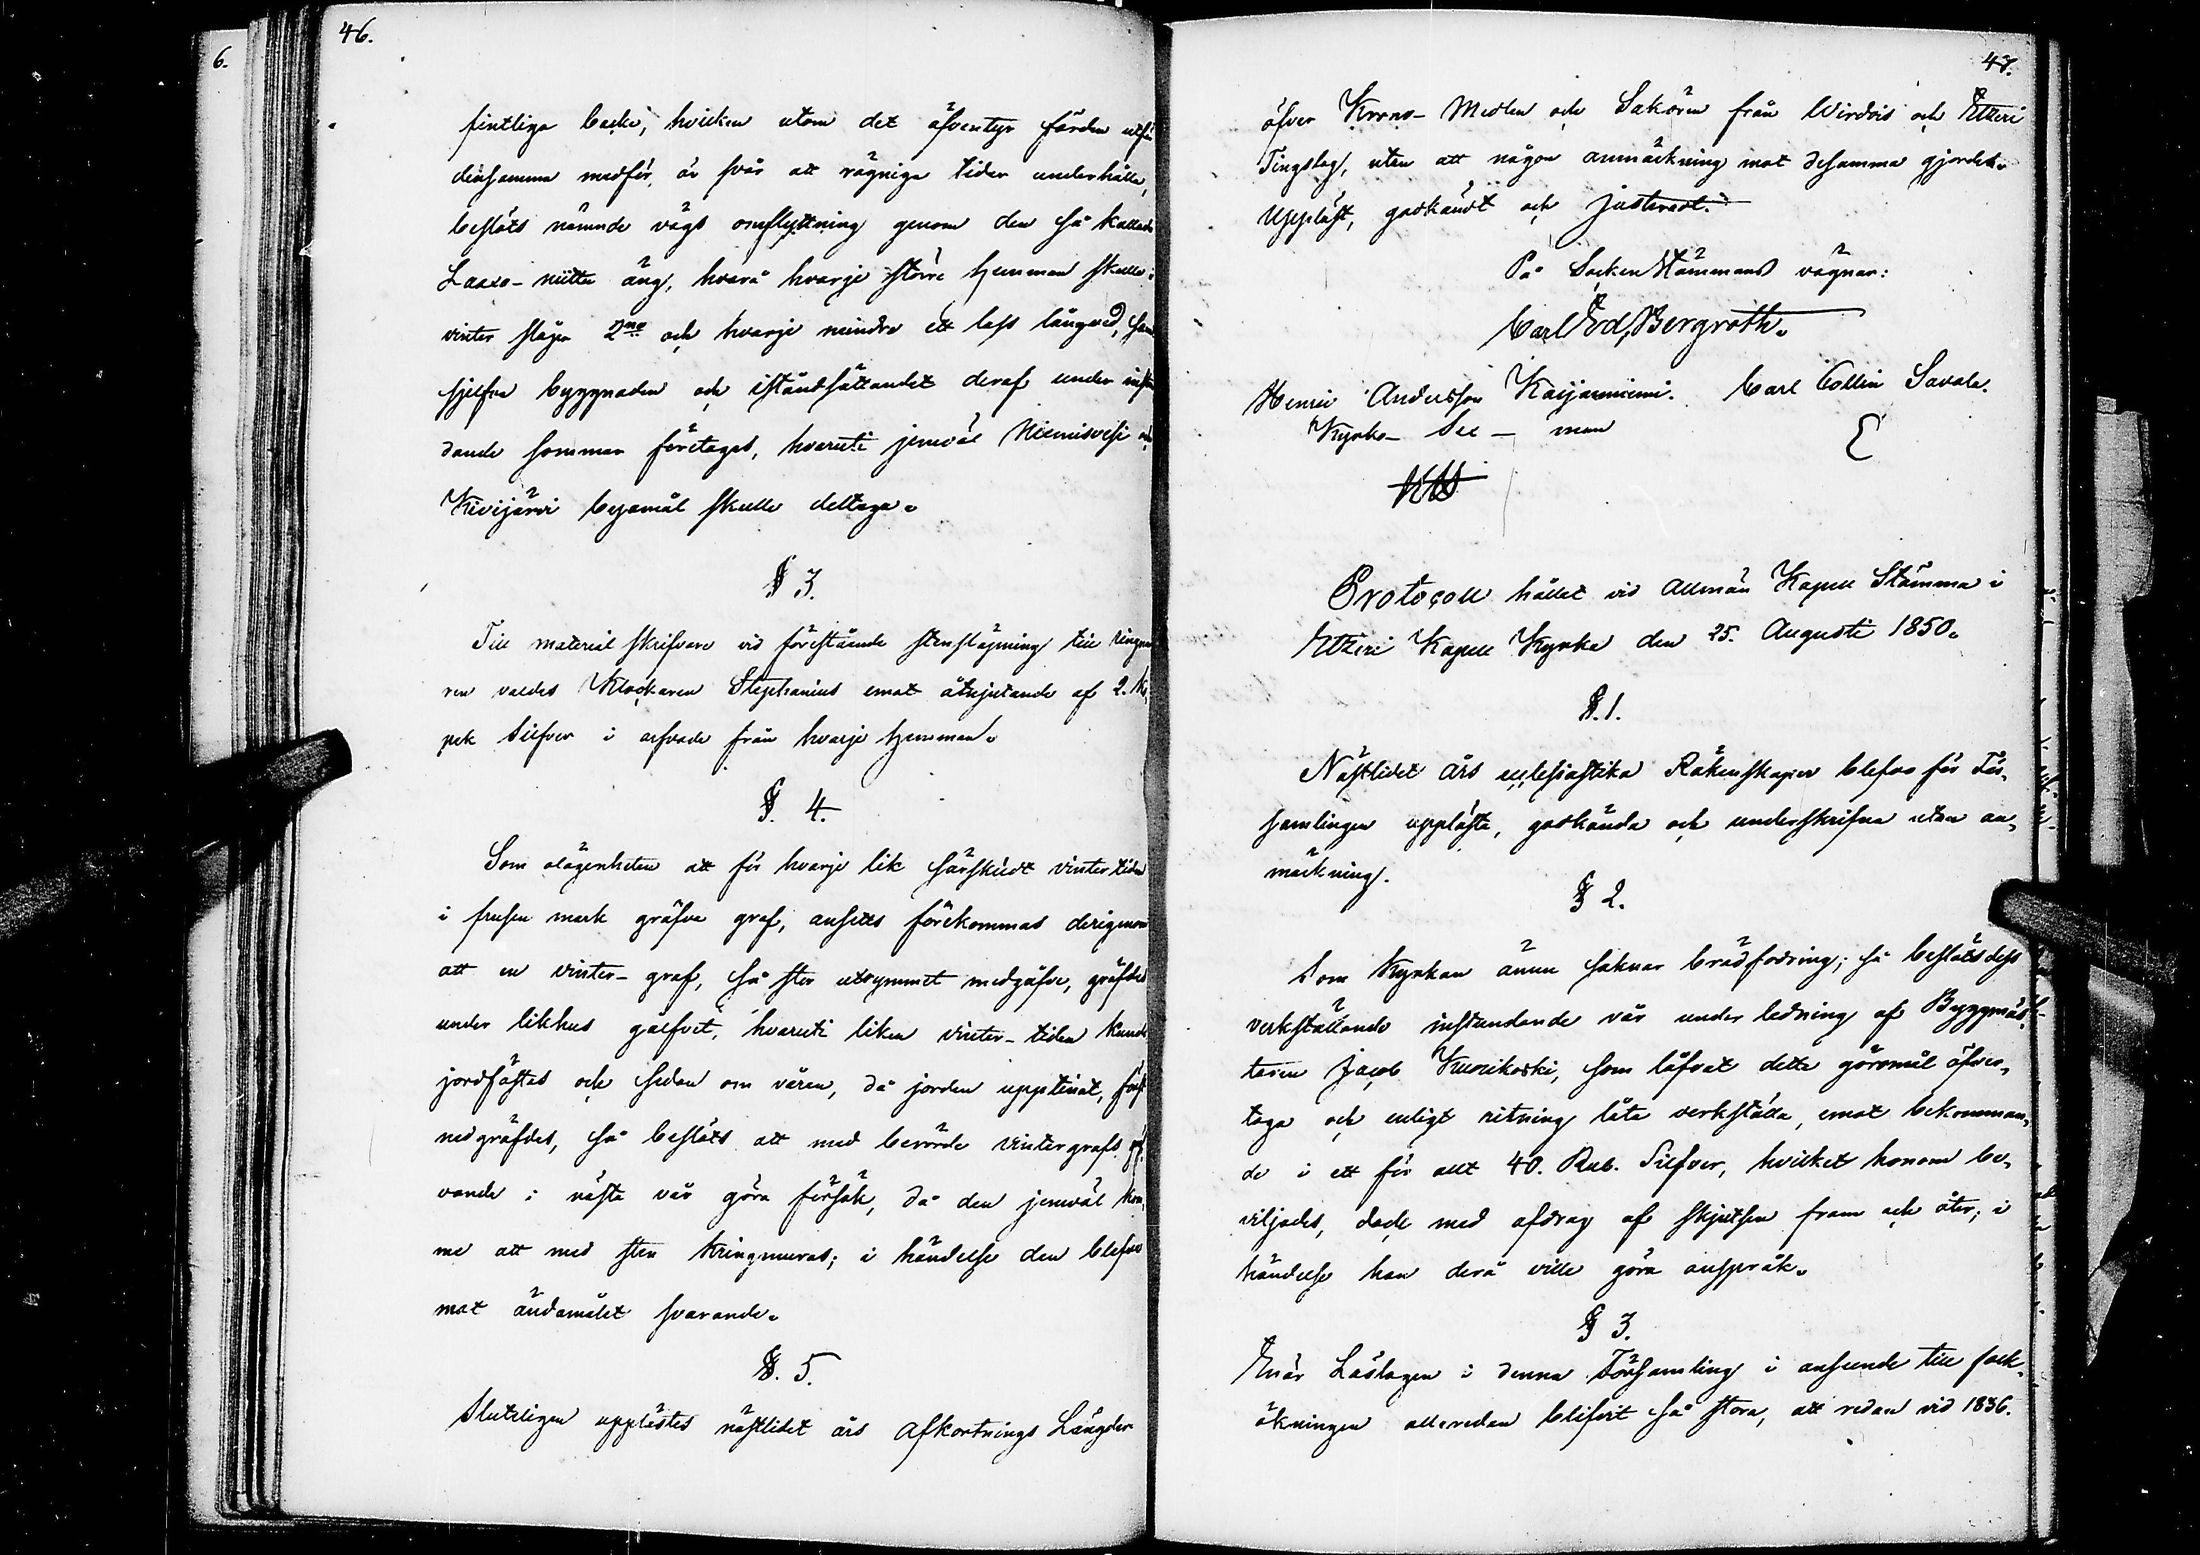 46.
6.
fintliga backe, hvilken utom det äfventyr färden utför
densamma medför, är svår att rägniga tider underhålla,
beslöts nämnde vägs omflyttning genom den så kallade
Laaxo-niittu äng, hvarå hvarje större hemman skulle i
vinter släpa 2ne och hvarje mindre ett lass långved, samt
sjelfva byggnaden och iståndsättandet deraf under instun
dande sommar företagas, hvaruti jemväl Niemisvesi och
Kivijärvi byamål skulle deltaga.
§ 3.
Till material skrifvare vid förestående stensläpning till ringmu
ren valdes Klockaren Stephanius emot åtnjutande af 2. Ko,
pek Silfver i arfvode från hvarje hemman.
§. 4.
Som olägenheten att för hvarje lik särskildt vintertiden
i frusen mark gräfva graf, ansetts förekommas derigenom
att en vinter-graf, så stor utrymmet medgåfve, gräfdes
under likhus golfvet, hvaruti liken vinter-tiden kunde
jordfästas och sedan om våren, då jorden upptinat,
nedgräfdes, så beslöts att med berörde vintergrafs
vande i nästa vår göra försök, då den jemväl kom,
me att med sten kringmuras; i händelse den blefve
mot ändamålet svarande.
§. 5.
Slutligen upplästes nästlidet års Afkortnings Längder
47.
öfver Krono-Medlen och Saköron från Wirdois och Etzeri
Tingslag, utan att någon anmärkning mot desamma gjordes.
Uppläst, godkändt och justeradt.
På Sockenstämmans vägnar:
Carl Ed, Bergroth.
Henric Andersson Kaijanniemi. Carl Collin Savola.
Kyrko- See - man
Protocoll hållet vid Allmän Kapell Stämma i
Etzeri Kapell Kyrka den 25. Augusti 1850.
§. 1.
Nästlidet års ecclesiastika Räkenskaper blefvo för För,
samlingen upplästa, godkända och underskrifna utan an,
märkning.
§ 2.
Som Kyrkan ännu saknar brädfodring; så beslöts dess
verkställande instundande vår under ledning af Byggmäs,
taren Jacob Kuorikoski, som låfvat detta göromål öfver,
taga och enligt ritning låta verkställa, emot bekomman,
de i ett för allt 40. Rub. Silfver, hvilket honom be,
viljades, dock med afdrag af skjutsen fram och åter, i
händelse han derå ville göra anspråk.
§ 3.
Enär Läslagen i denna Församling i anseende till folk,
ökningen allaredan blifvit så stora, att redan vid 1836.